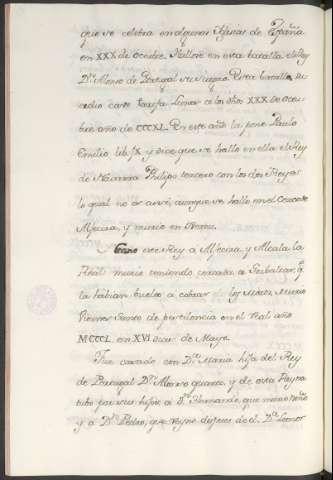 que se celebra en algunas Yglesias de España
en XXX de Octubre. Hallose en esta batalla el Rey
Dⁿ. Alonso de Portugal su suegro. Esta batalla, su
cedio cave Tarifa Lunes a los dhos XXX de Octu
bre año de CCCXL. En este año la pone Paulo
Emilio lib. IX y dice que se hallo en ella el Rey
de Navarra Philipo tercero con los dos Reyes
lo qual no es ansi, aunque se hallo en el Cerco de
Algecira, y murio en
Gano este Rey a Algecira, y Alcala la
Real murio teniendo cercada a Gibraltar, q.
la habian buelto a cobrar los Moros, murio
Viernes Santo de pestilencia en el Real año
MCCCL en XVI dias de Mayo.
Fue casado con Dª. Maria hija del Rey
de Portugal Dⁿ. Alonso quarto, y de esta Reyna
tubo por sus hijos a Dⁿ. Fernando, que murio niño
y a Dⁿ. Pedro, que reyno despues de el. Dª. Leonor